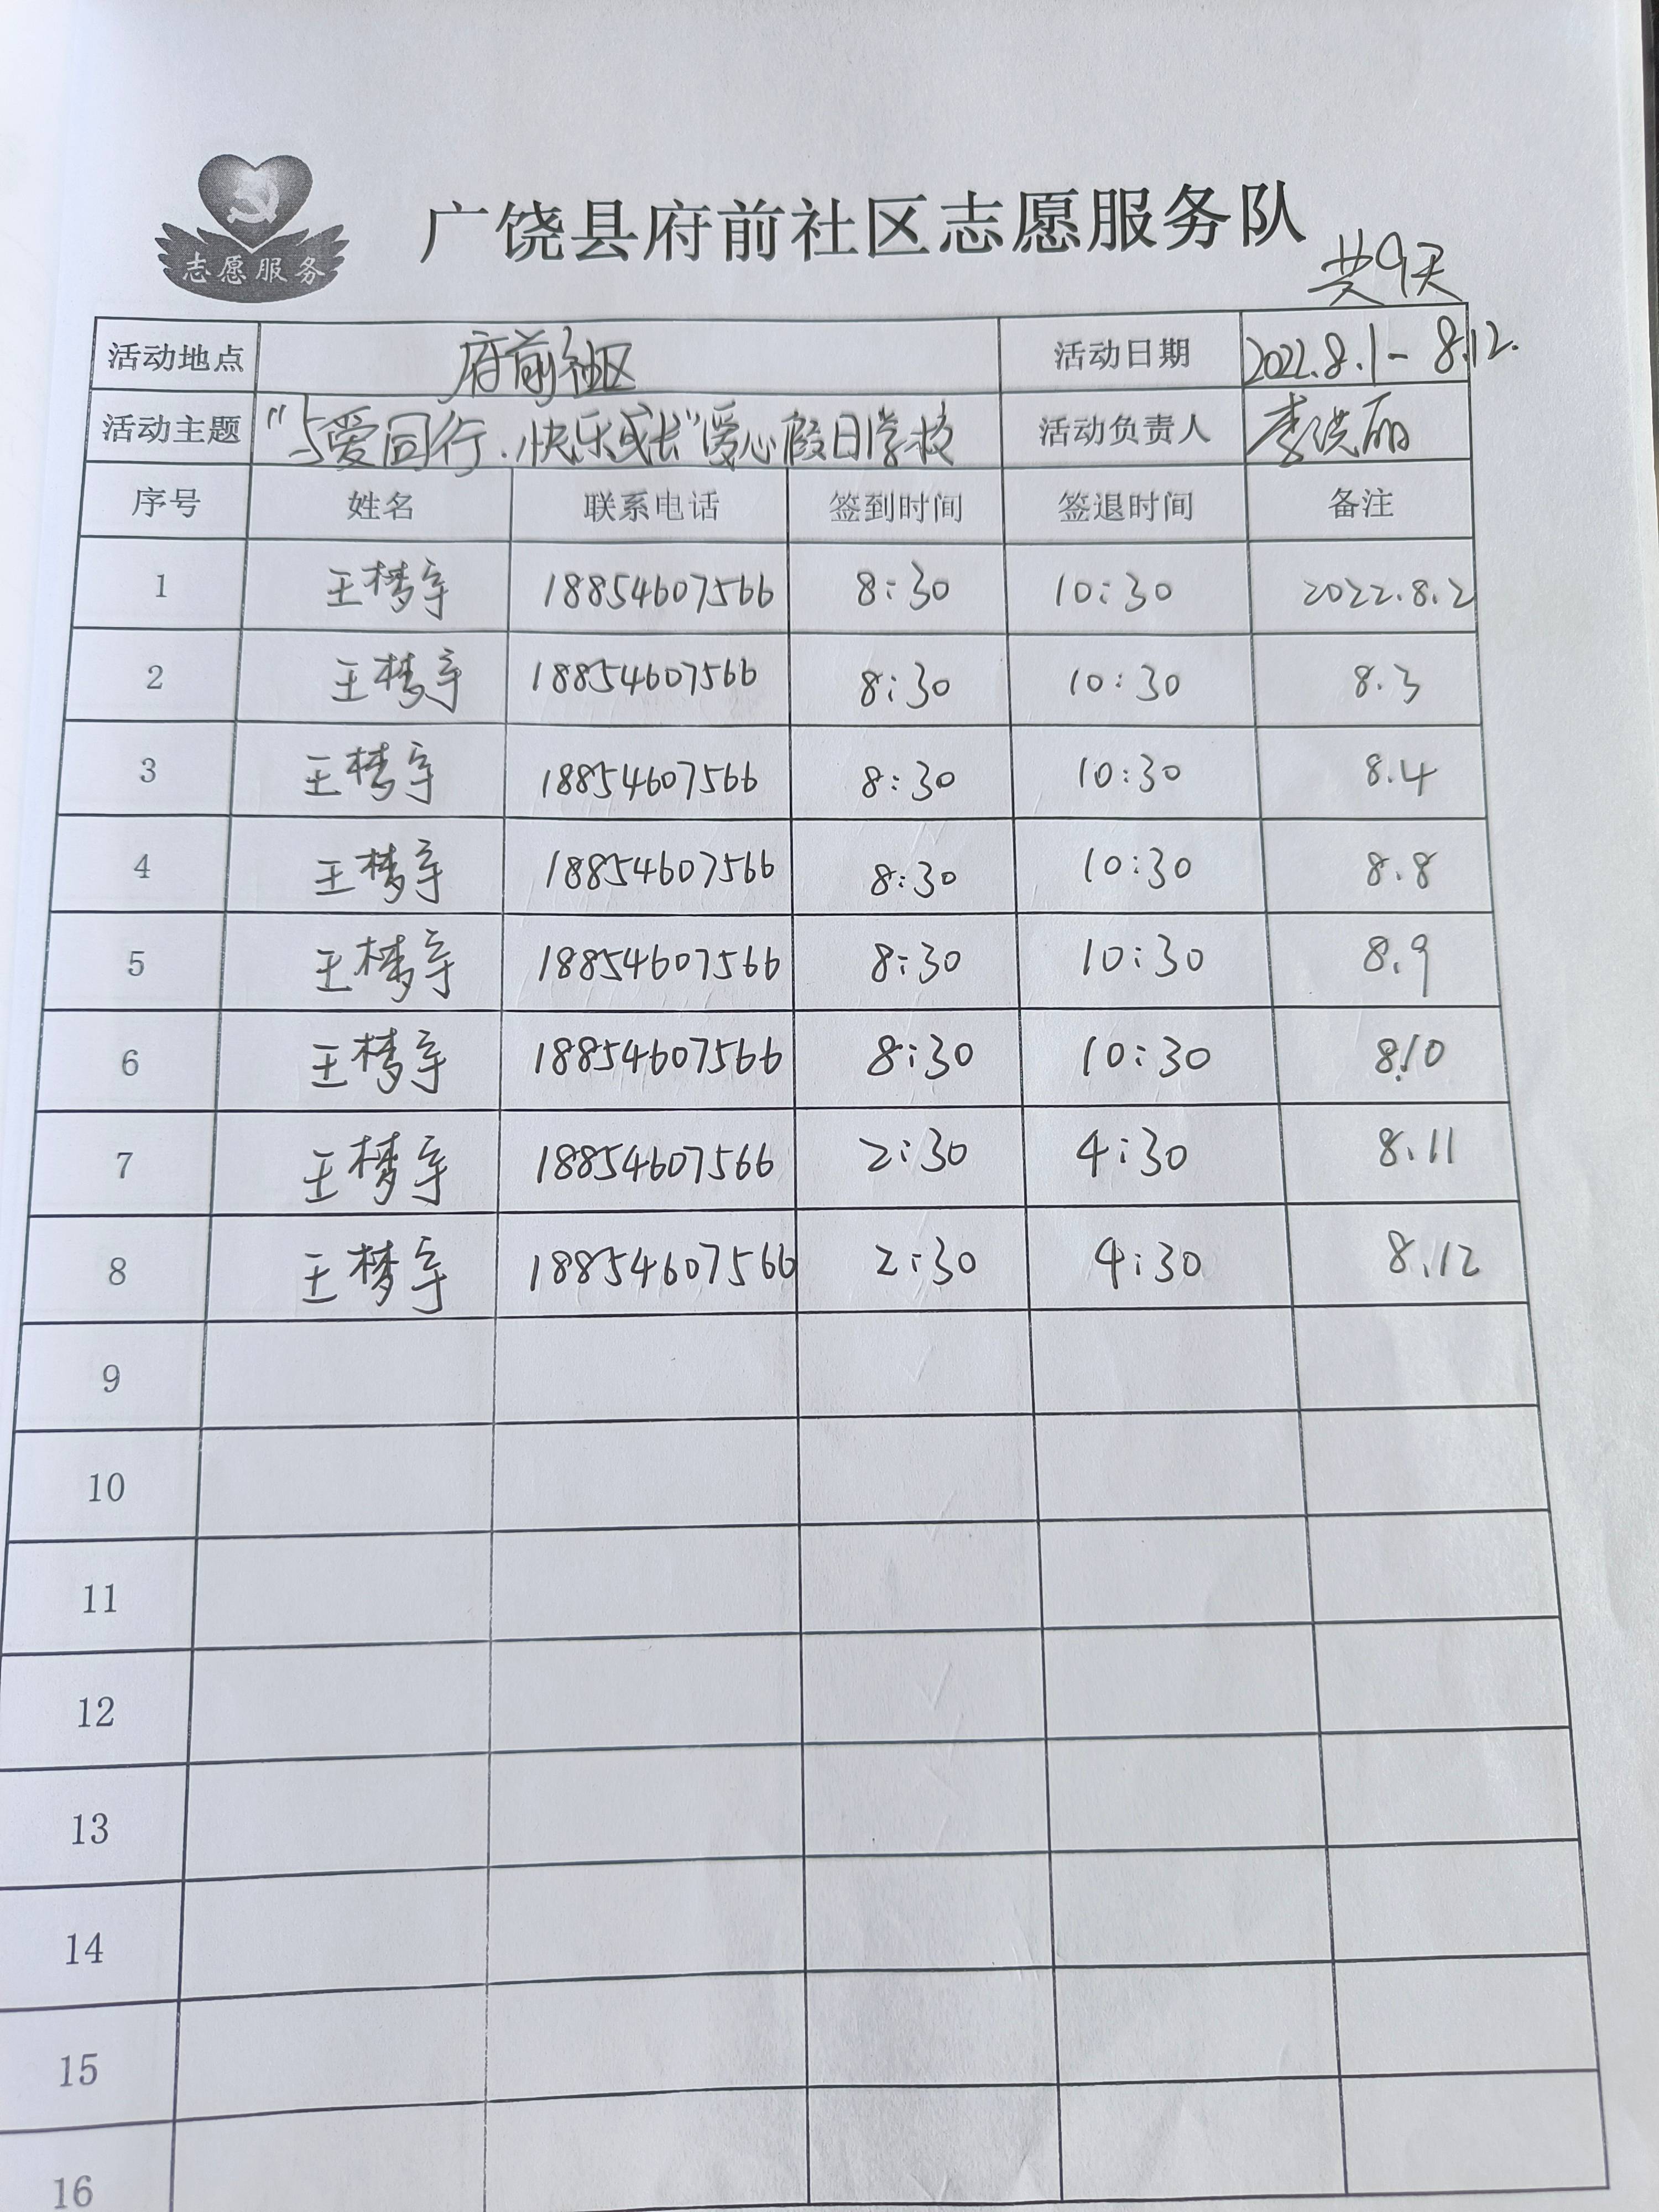 志愿服务
广饶县府前社区志愿服务队
共9天
活动地点 府前社区 活动日期 2022.8.1-8.12.
活动主题 "与爱同行.快乐成长"爱心假日学校 活动负责人 李洪丽
序号 姓名 联系电话 签到时间 签退时间 备注
1 王梦宇 18854607566 8:30 10:30 2022.8.2
2 王梦宇 18854607566 8:30 10:30 8.3
3 王梦宇 18854607566 8:30 10:30 8.4
4 王梦宇 18854607566 8:30 10:30 8.8
5 王梦宇 18854607566 8:30 10:30 8.9
6 王梦宇 18854607566 8:30 10:30 8.10
7 王梦宇 18854607566 2:30 4:30 8.11
8 王梦宇 18854607566 2:30 4:30 8.12
9
10
11
12
13
14
15
16